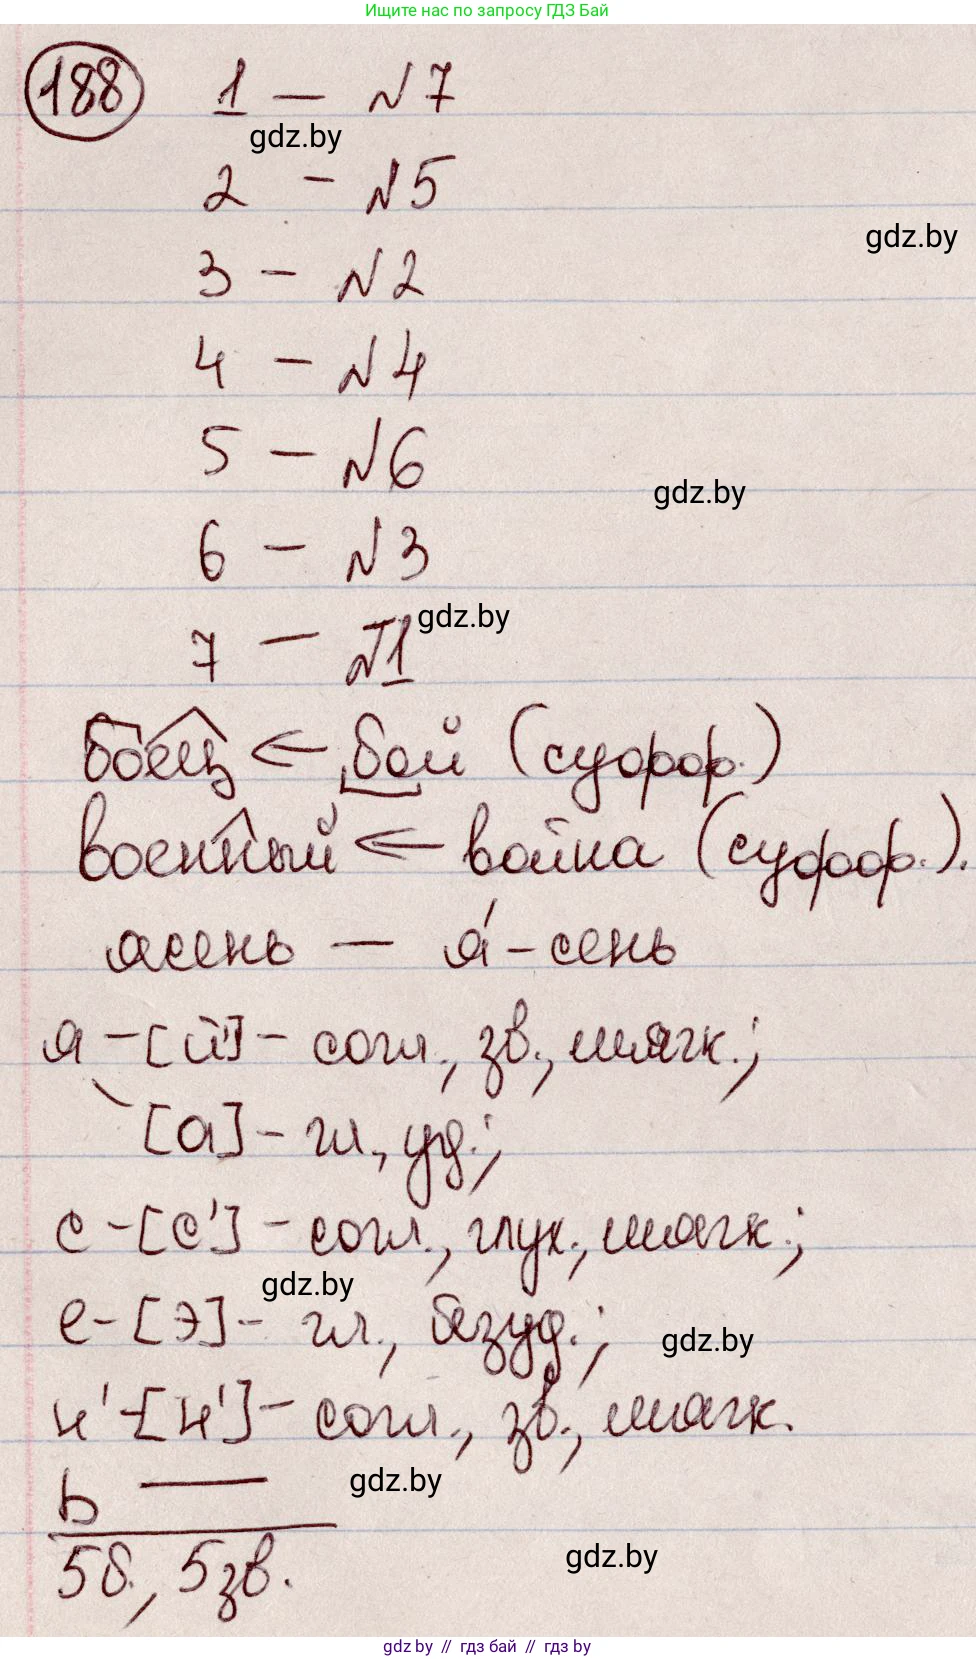 Ищите нас по запросу ГДЗ Бай
188 1 – N7
gdz.by
2 – N5
gdz.by
3 – N2
4 – N4
5 – N6
gdz.by
6 – N3
gdz.by
7 – N1
боец ← бой (суффр.)
военный ← война (суффр.).
ясень – я́-сень
я – [й'] – согл., зв., мягк.;
[а] – гл., уд.;
с – [с'] – согл., глух., мягк.;
gdz.by
е – [э] – гл., безуд.;
gdz.by
н' – [н'] – согл., зв., мягк.
gdz.by
ь —
5б., 5зв.
gdz.by
gdz.by // гдз бай // гдз by